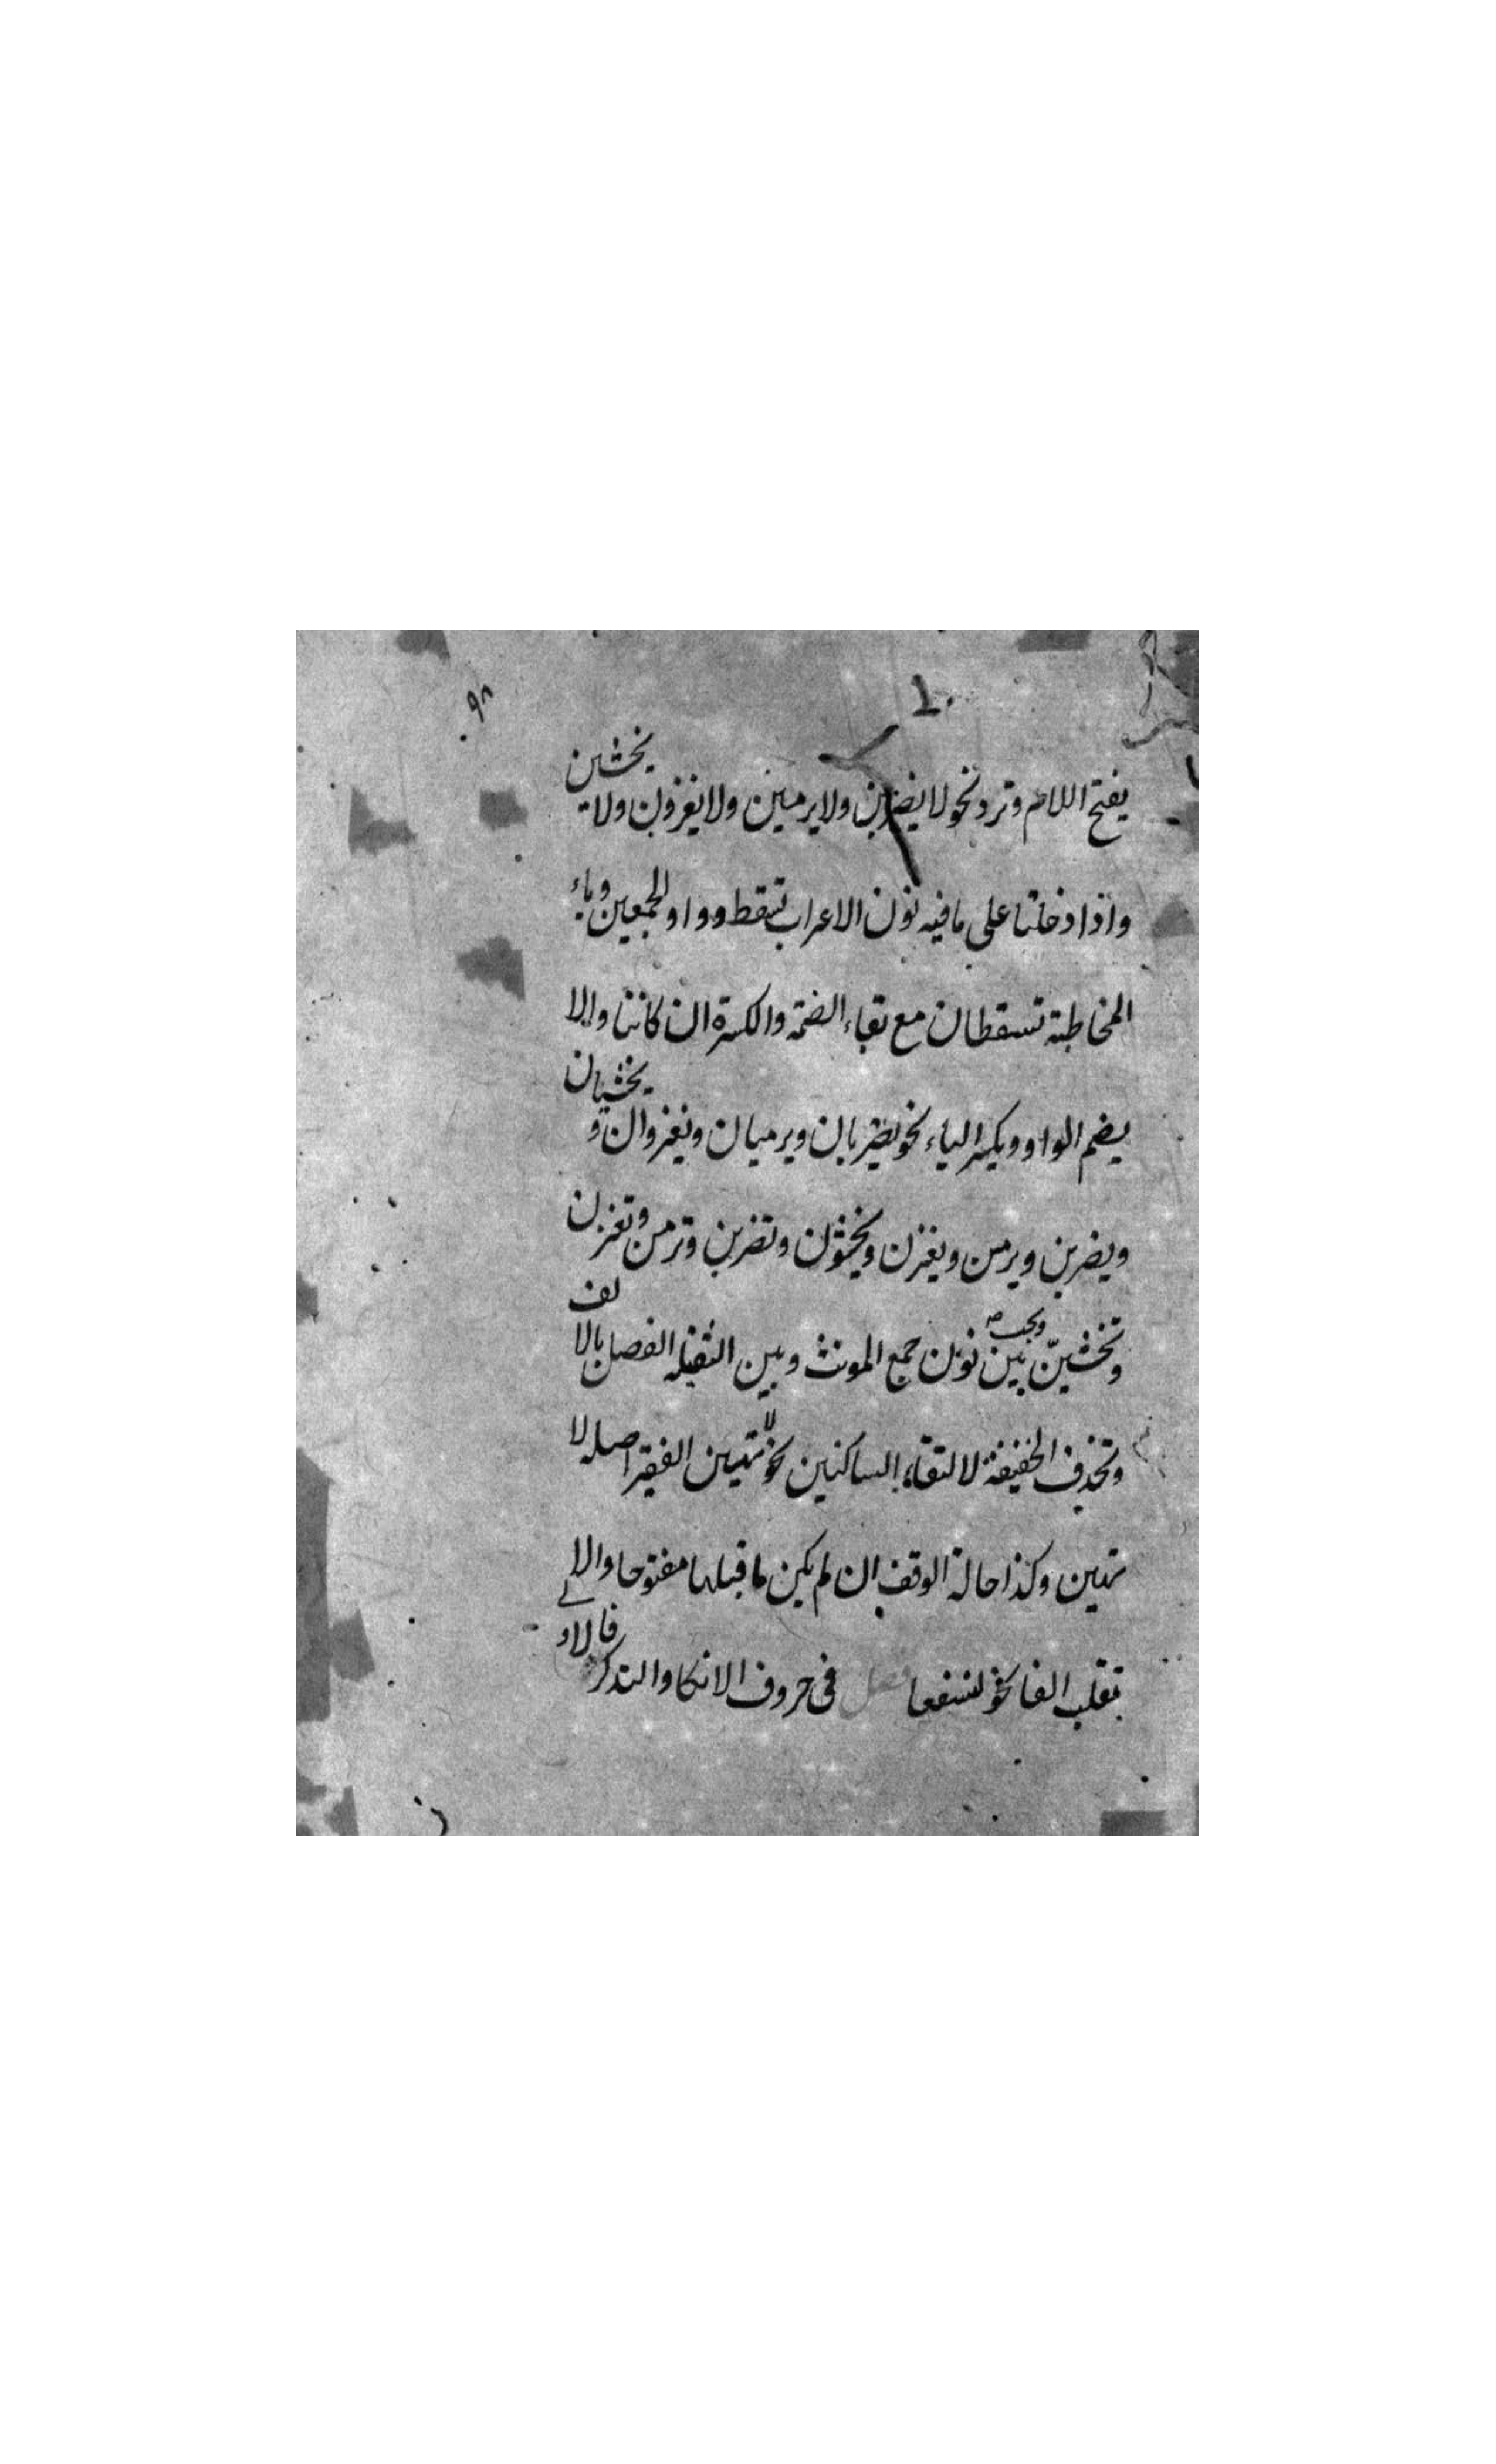 ٩٨
يفتح اللام وترد نحو لا يضربن ولا يرمين ولا يغزون ولا يخشين
واذا دخلتا على ما فيه نون الاعراب تسقط وواو الجمعين وياء
المخاطبة تسقطان مع بقاء الضمة والكسرة ان كانتا والا
يضم الواو ويكسر الياء نحو يضربان ويرميان ويغزوان و يخشيان
ويضربن ويرمن ويغزن ويخشون وتضربن وترمن وتغزن
وتخشين ويجب بين نون جمع المونث وبين الثقيله الفصل بالالف
وتحذف الخفيفة لالتقاء الساكنين نحو لا تهين الفقير اصله لا
تهين وكذا حالة الوقف ان لم يكن ما قبلها مفتوحا والا
تقلب الفا نحو لنسفعا فصل فى حروف الانكا والتذكر فالاولے